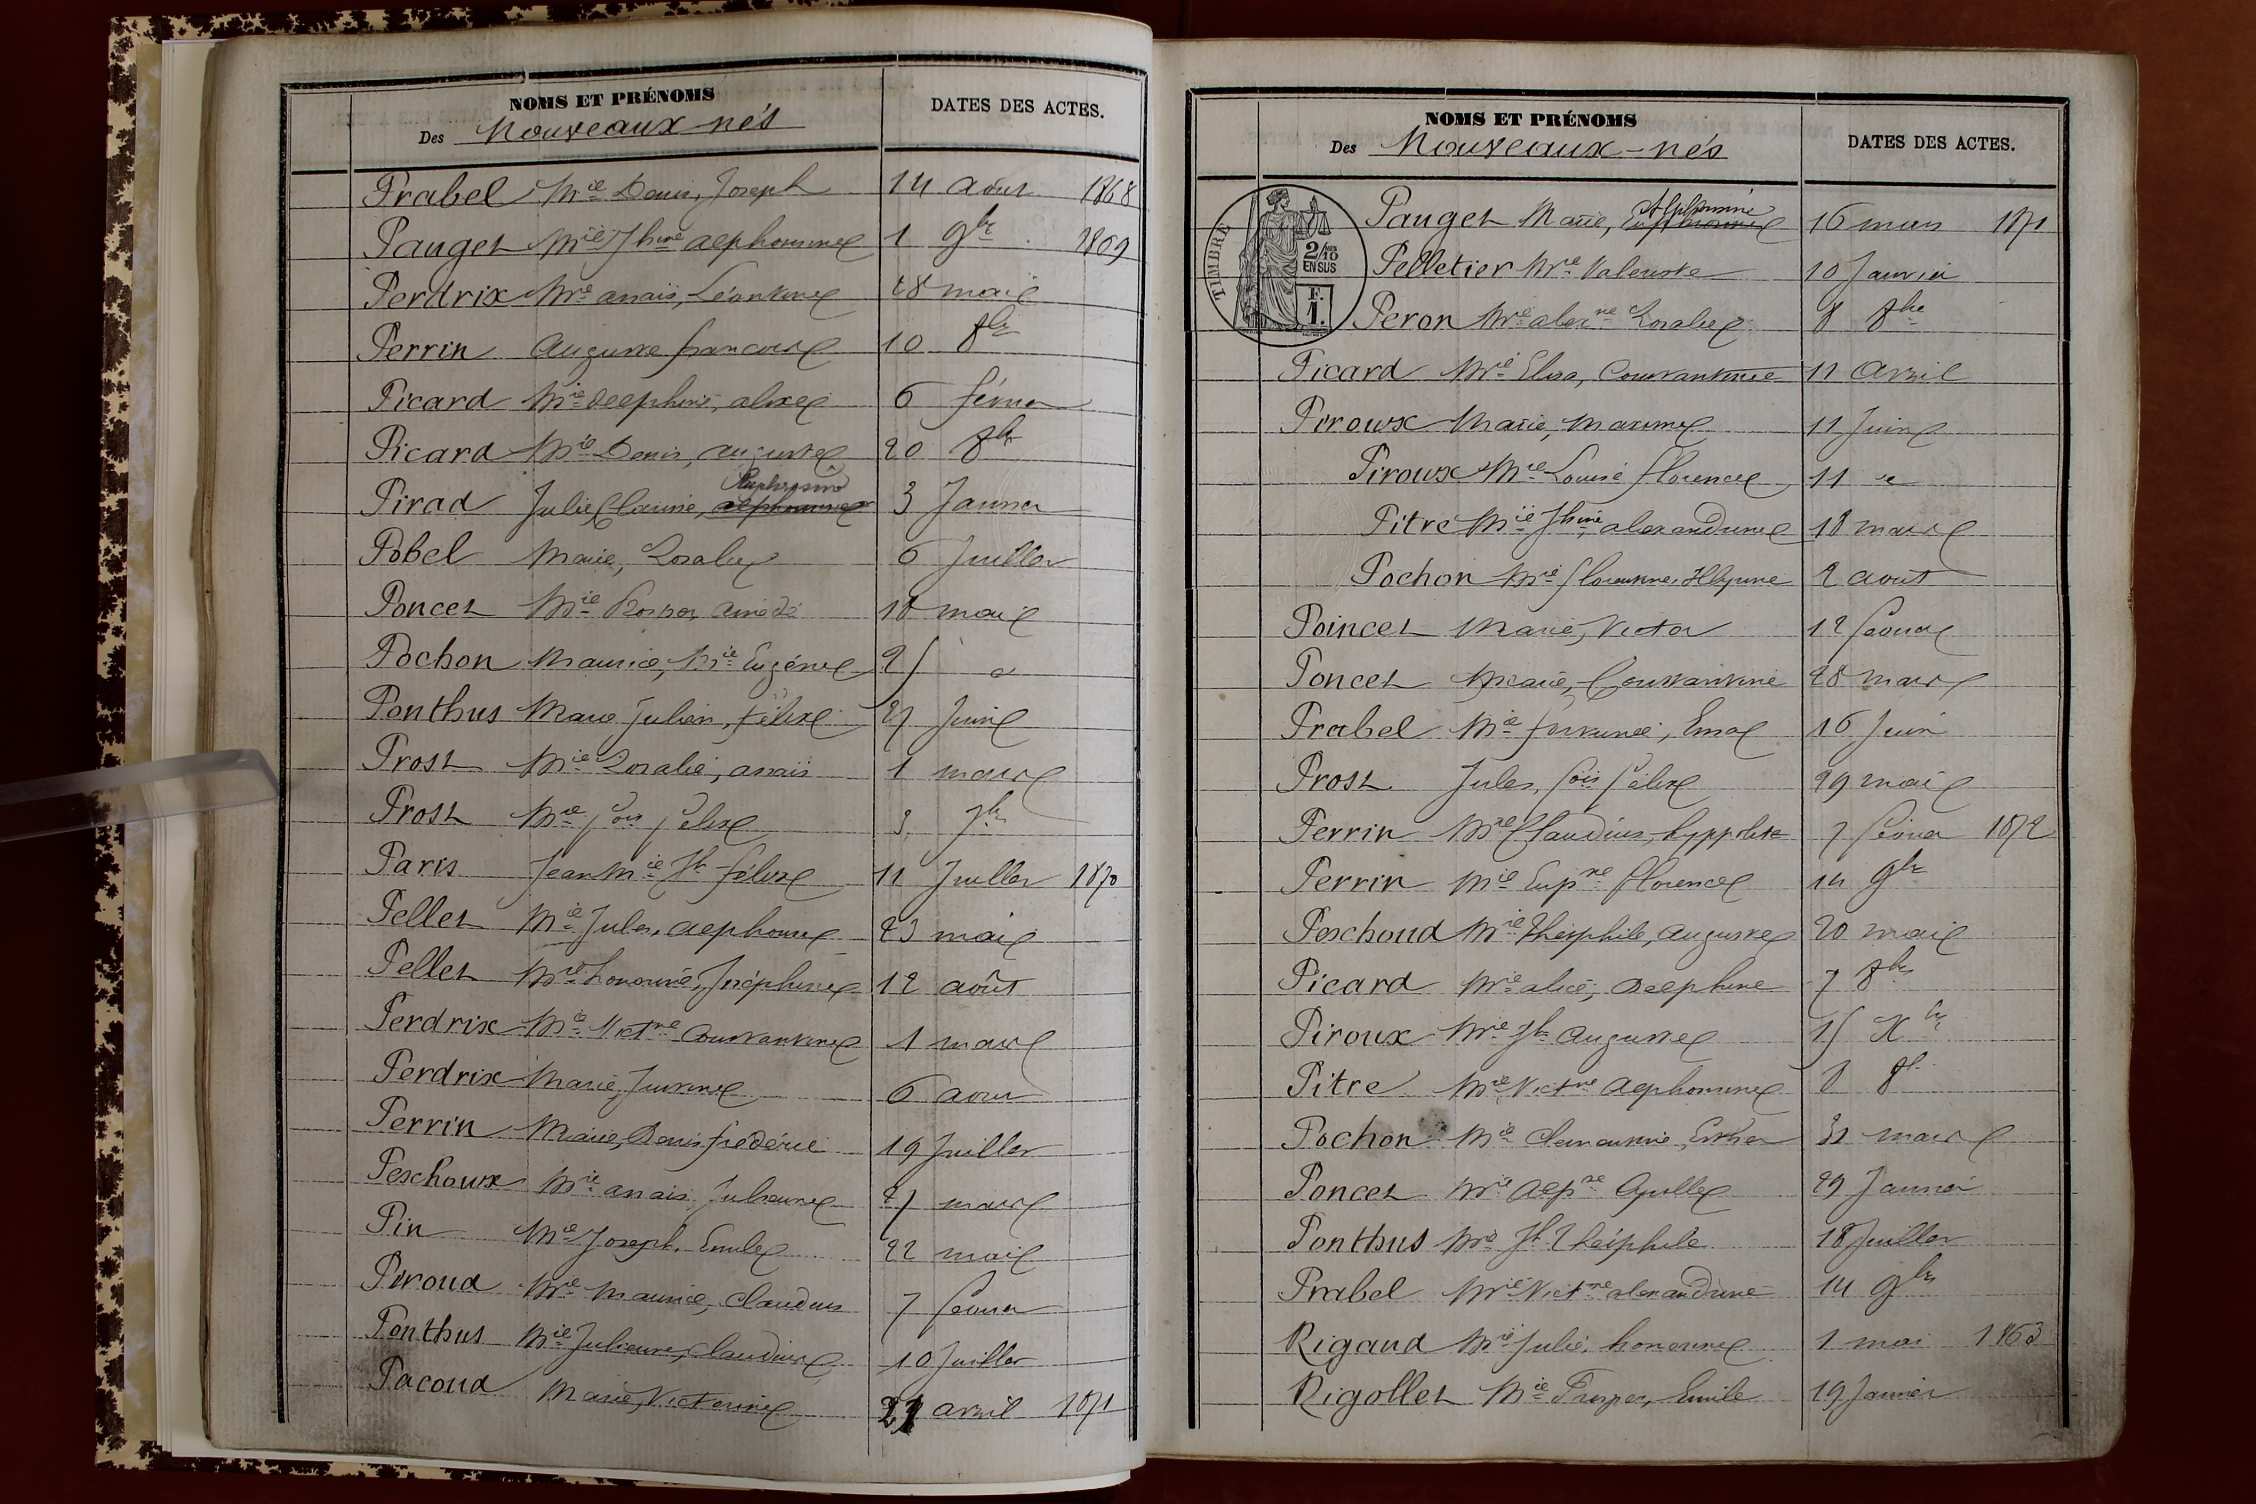 NOMS ET PRÉNOMS
Des Nouveaux-nés
DATES DES ACTES.
Prabel Mie Denis, Joseph 14 août 1868
Pauget Mie Jhine alphonsine 1 9bre 1869
Perdrix Mie anaïs, Léontine 28 mai
Perrin Auguste françois 10 8bre
Picard Mie delphine, alix 6 février
Picard Mie Denis, auguste 20 8bre
Pirad Julie Clarisse, Euphrosine 3 Janvier
Pobel Marie, Rosalie 6 Juillet
Poncet Mie Prosper, amédé 18 mai
Pochon Maurice, Mie Eugène 25 d
Ponthus Marie Julien, félix 27 Juin
Prost Mie Rosalie, anaïs 1 mars
Prost Mie fois félix 3 7bre
Paris Jean Mie Jh félix 11 Juillet 1870
Pellet Mie Jules, alphonse 23 mai
Pellet Mie honorine, Joséphine 12 août
Perdrix Mie Victne Constantine 1 mars
Perdrix Marie, Justine 6 aout
Perrin Marie, Denis frédéric 19 Juillet
Peschoux Mie anaïs Julienne 27 mars
Pin Mie Joseph, Emile 22 mai
Piroud Mie Maurice, Claudius 7 février
Ponthus Mie Julienne, Claudine 10 Juillet
Pacoud Marie, Victorine 21 avril 1871
NOMS ET PRÉNOMS
Des Nouveaux-nés
DATES DES ACTES.
TIMBRE
2/10
EN SUS
F.
1.
Pauget Marie, Alphonsine 16 mars 1871
Pelletier Mie Valentine 10 Janvier
Peron Mie alexne Rosalie 8 8bre
Picard Mie Elisa, Constantine 11 avril
Piroux Marie, Maxime 11 Juin
Piroux Mie Louise florence 11 d
Pitre Mie Jhine, alexandrine 18 mars
Pochon Mie florentine, 2 aout
Poincet Marie, Victor 12 février
Poncet Marie, Constantine 28 mars
Prabel Mie fortunée, Ema 16 Juin
Prost Jules, fois félix 29 mai
Perrin Mie Claudius, hyppolite 7 février 1872
Perrin Mie Eupne florence 14 9bre
Peschoud Mie Théophile, auguste 20 mai
Picard Mie alice, Delphine 7 8bre
Piroux Mie Jh auguste 15 Xbre
Pitre Mie Victne alphonsine 8 8bre
Pochon Mie Clémentine, Esther 31 mars
Poncet Mie alpse 29 Janvier
Ponthus Mie Jh Théophile 18 Juillet
Prabel Mie Victne alexandrine 14 9bre
Rigaud Mie Julie, honorine 1 mai 1863
Rigollet Mie Prosper, Emile 19 Janvier